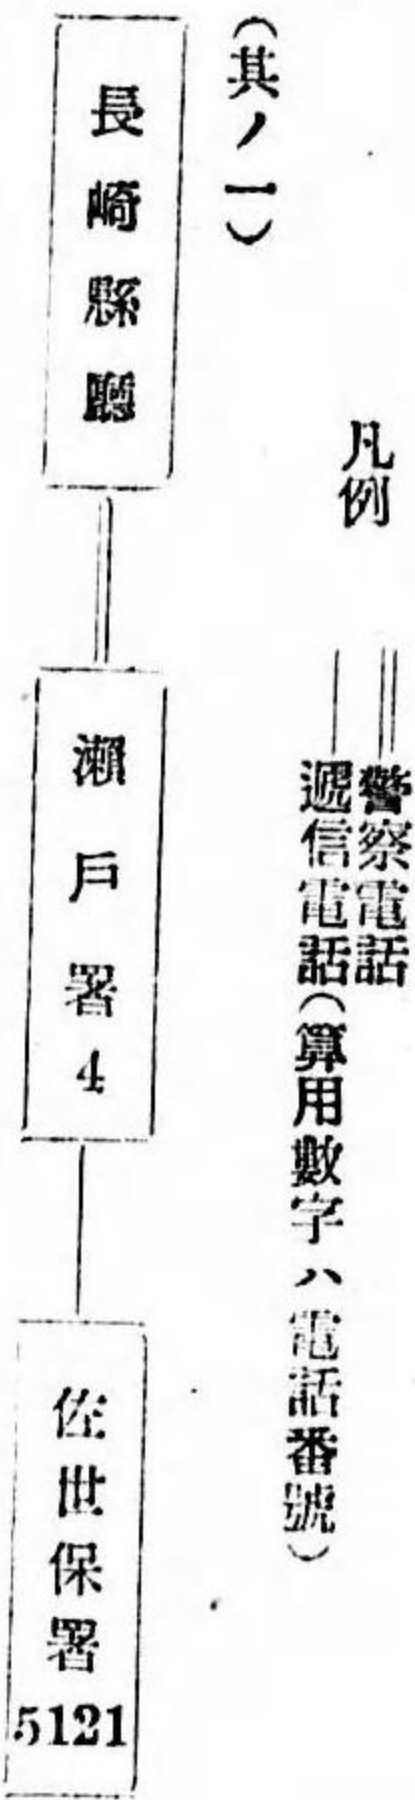 凡例
警察電話
遞信電話(算用數字ハ電話番號)
(其ノ一)
長崎縣廳
瀬戸署4
佐世保署5121